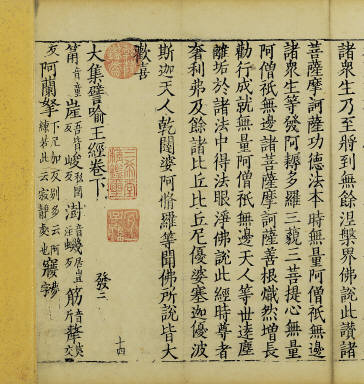 諸眾生乃至將到無餘涅槃界佛說此讚諸
菩薩摩訶薩功德法本時無量阿僧祇無邊
諸眾生等發阿耨多羅三藐三菩提心無量
阿僧祇無邊諸菩薩摩訶薩善根熾然增長
勸行成就無量阿僧祇無邊天人等世遠塵
離垢於諸法中得法眼淨佛說此經時尊者
奢利弗及餘諸比丘比丘尼優婆塞迦優波
斯迦天人乾闥婆阿脩羅等聞佛所說皆大
歡喜
大集譬喻王經卷下 發三
十四
筩音童 崖 峻 澍 筋
阿蘭拏 此云寂靜處也